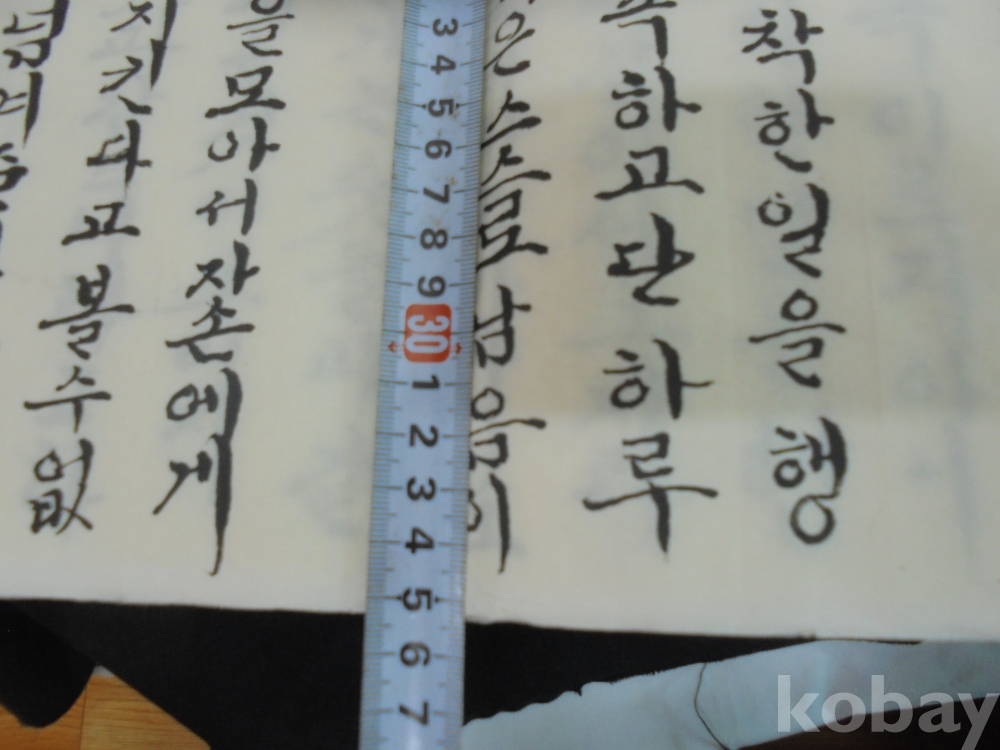 착한일을행
하고단하루
남음이
을모아서자손에게
지킨다고볼수없
넘겨
3 4 5 6 7 8 9 30 1 2 3 4 5 6 7
kobay